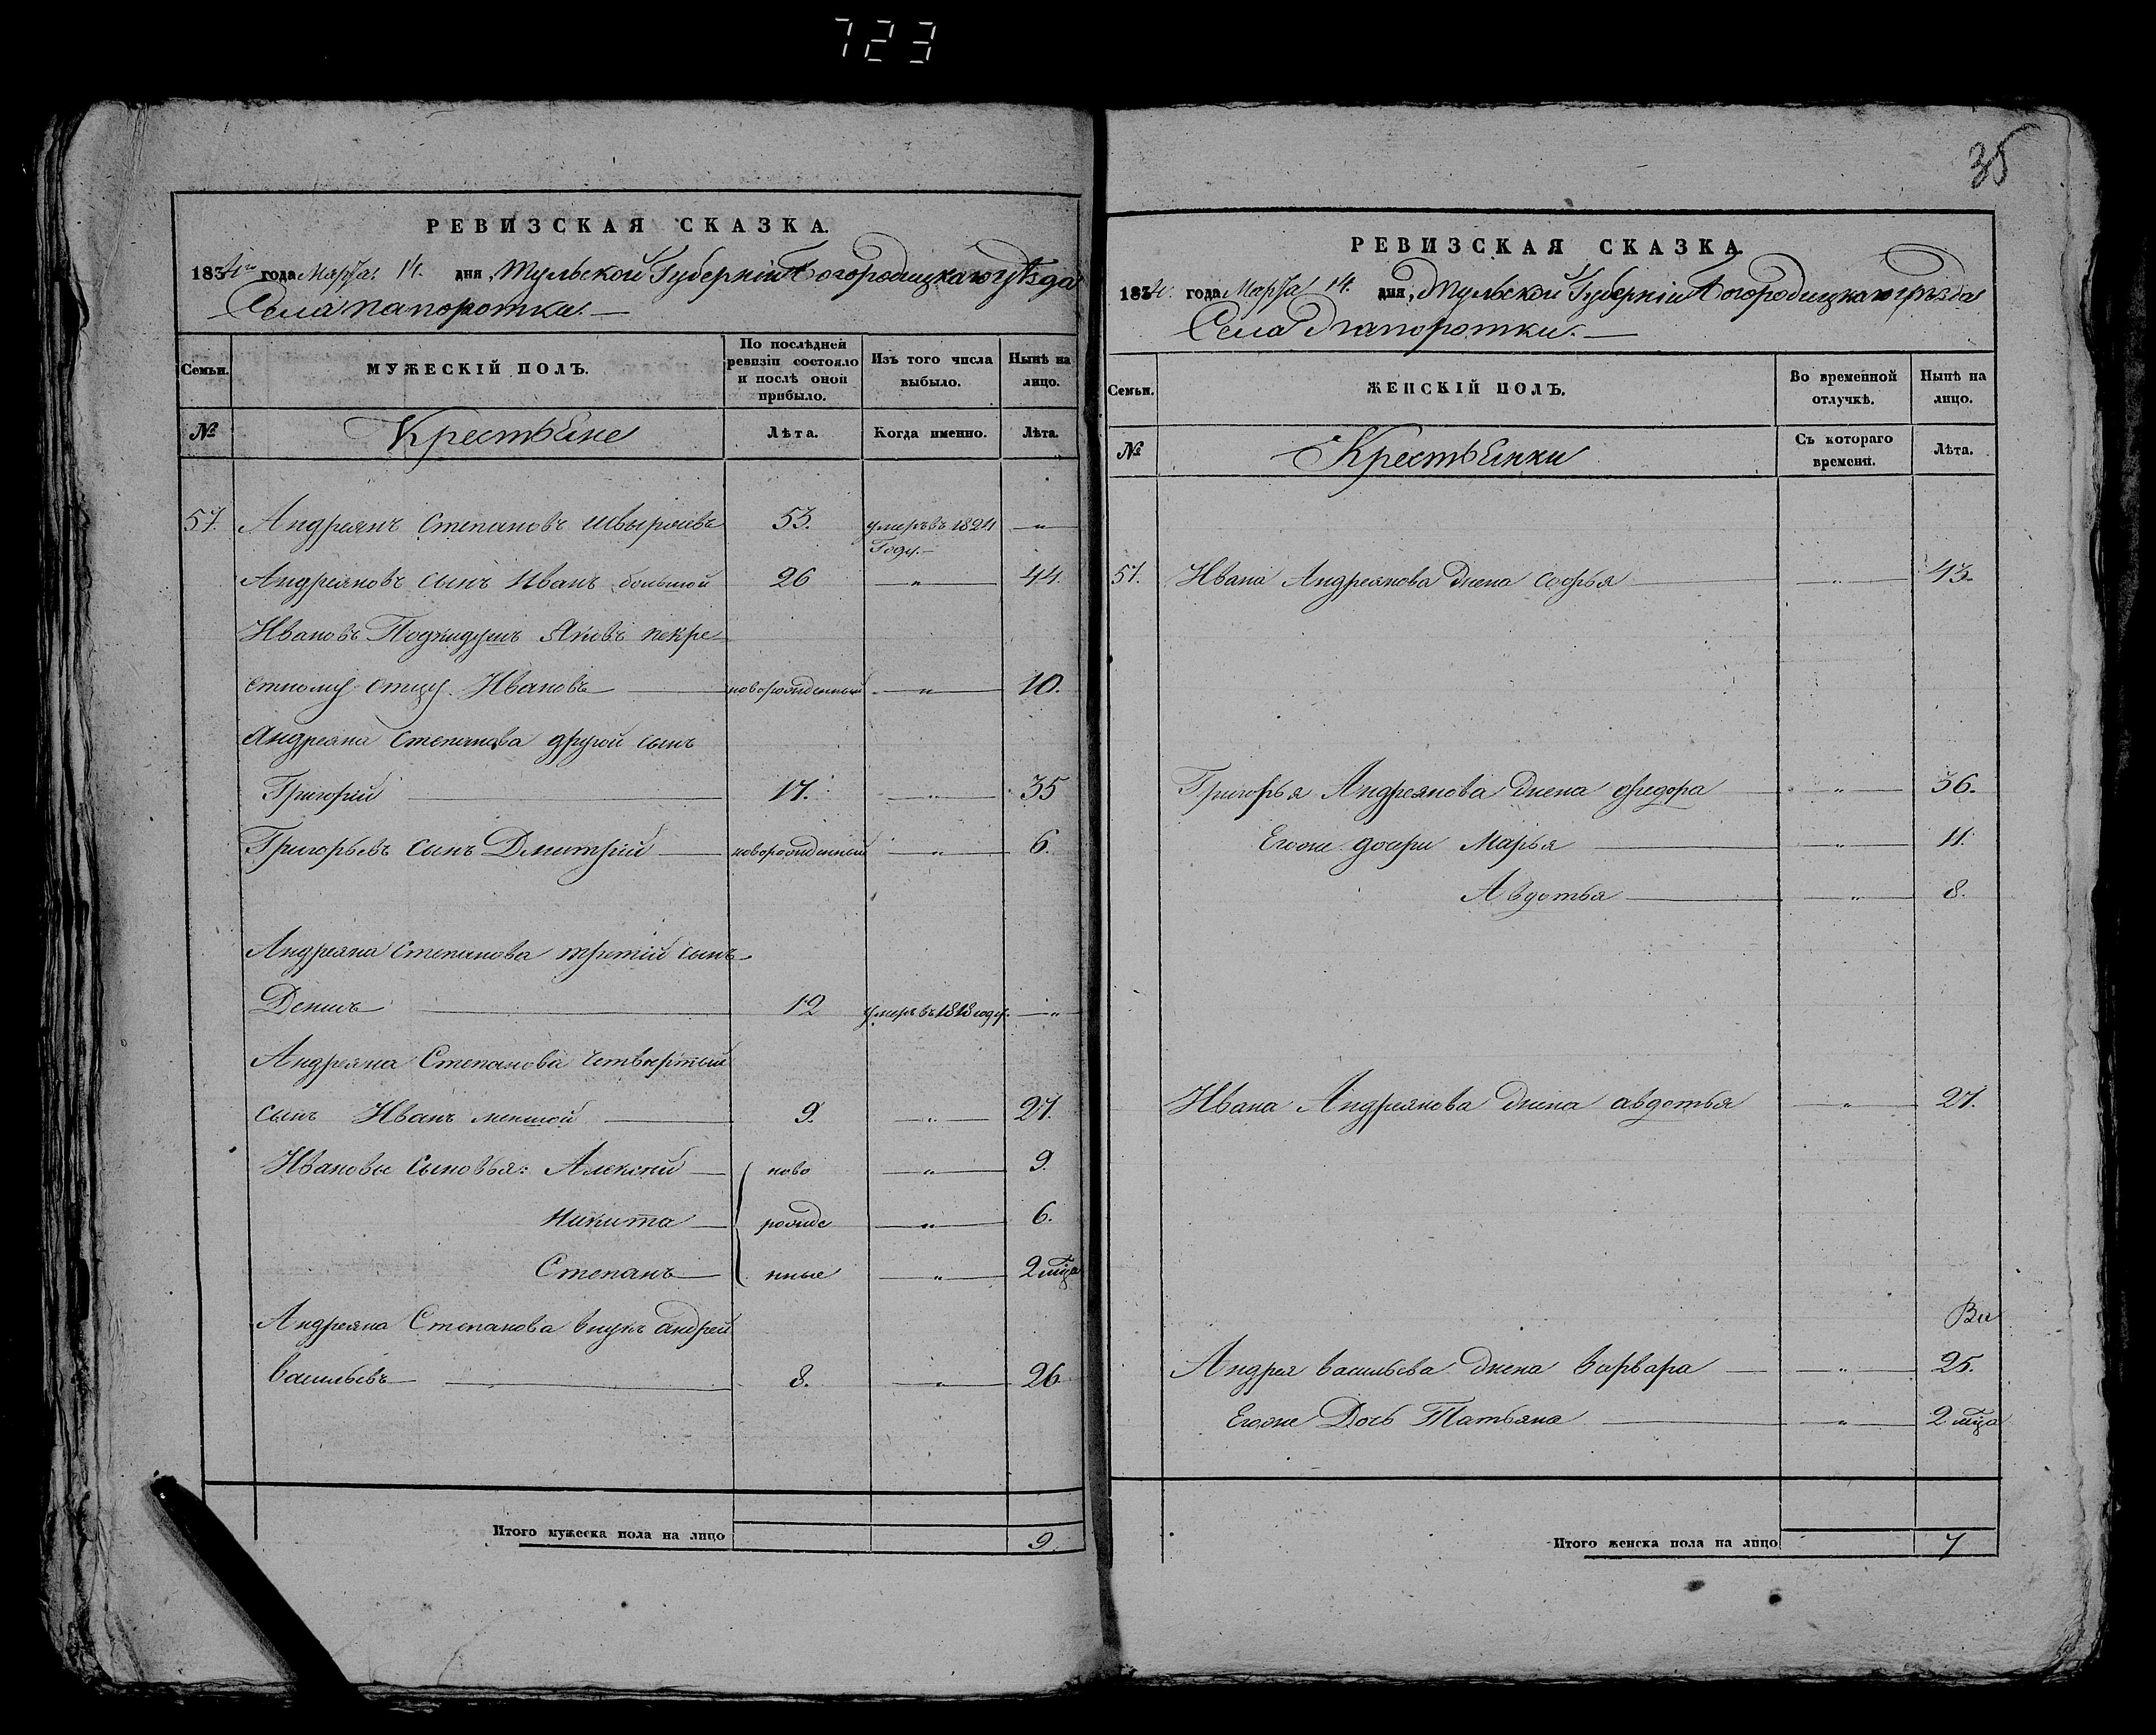 723
35
РЕВИЗСКАЯ СКАЗКА.
1834го года Марта 14. дня, Тульской Губерніи Богородицкаго уѣзда
Села папоротки.
Семьи. МУЖЕСКІЙ ПОЛЪ. По послѣдней ревизіи состояло и послѣ оной прибыло. Изъ того числа выбыло. Нынѣ на лицо.
№ Крестьяне Лѣта. Когда именно. Лѣта.
57. Андреянъ Степановъ 53. умеръ въ 1824 Году. „
Андреяновъ сынъ Иванъ большой 26 „ 44.
Ивановъ Подкидушъ Яковъ покре-
стному отцу Ивановъ новорожденный „ 10.
Андреяна Степанова другой сынъ
Григорій 17. „ 35
Григорьевъ сынъ Дмитрій новорожденный „ 6.
Андреяна Степанова третій сынъ
Денисъ 12 умеръ въ 1818 году. „
Андреяна Степанова четвертый
сынъ Иванъ меншой 9. „ 27.
Ивановы сыновья: Алексѣй ново „ 9.
Никита рожде „ 6.
Степанъ нные „ 2 мца
Андреяна Степанова внукъ андрей
васильевъ 8. „ 26
Итого мужеска пола на лицо 9.
РЕВИЗСКАЯ СКАЗКА.
1834. года Марта 14. дня, Тульской Губерніи Богородицкаго уѣзда
Села Папоротки.
Семьи. ЖЕНСКІЙ ПОЛЪ. Во временной отлучкѣ. Нынѣ на лицо.
№ Крестьянки Съ котораго времени. Лѣта.
57. Ивана Андреянова жена софья „ 43.
Григорья Андреянова жена федора „ 36.
Егоже дочери Марья „ 11.
Авдотья „ 8.
Ивана Андреянова жена авдотья „ 27.
Андрея васильева жена варвара „ 25.
Егоже Дочь Татьяна „ 2 мца
Итого женска пола на лицо 7